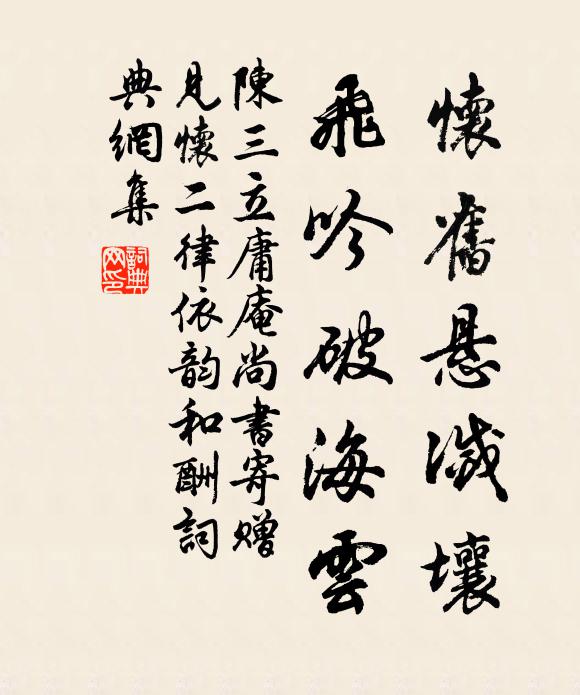 懷舊悬滅壤
飛吟破海雲
陳三立庸庵尚書寄贈
見懷二律依韵和酬詞
典網集
詞典
网印